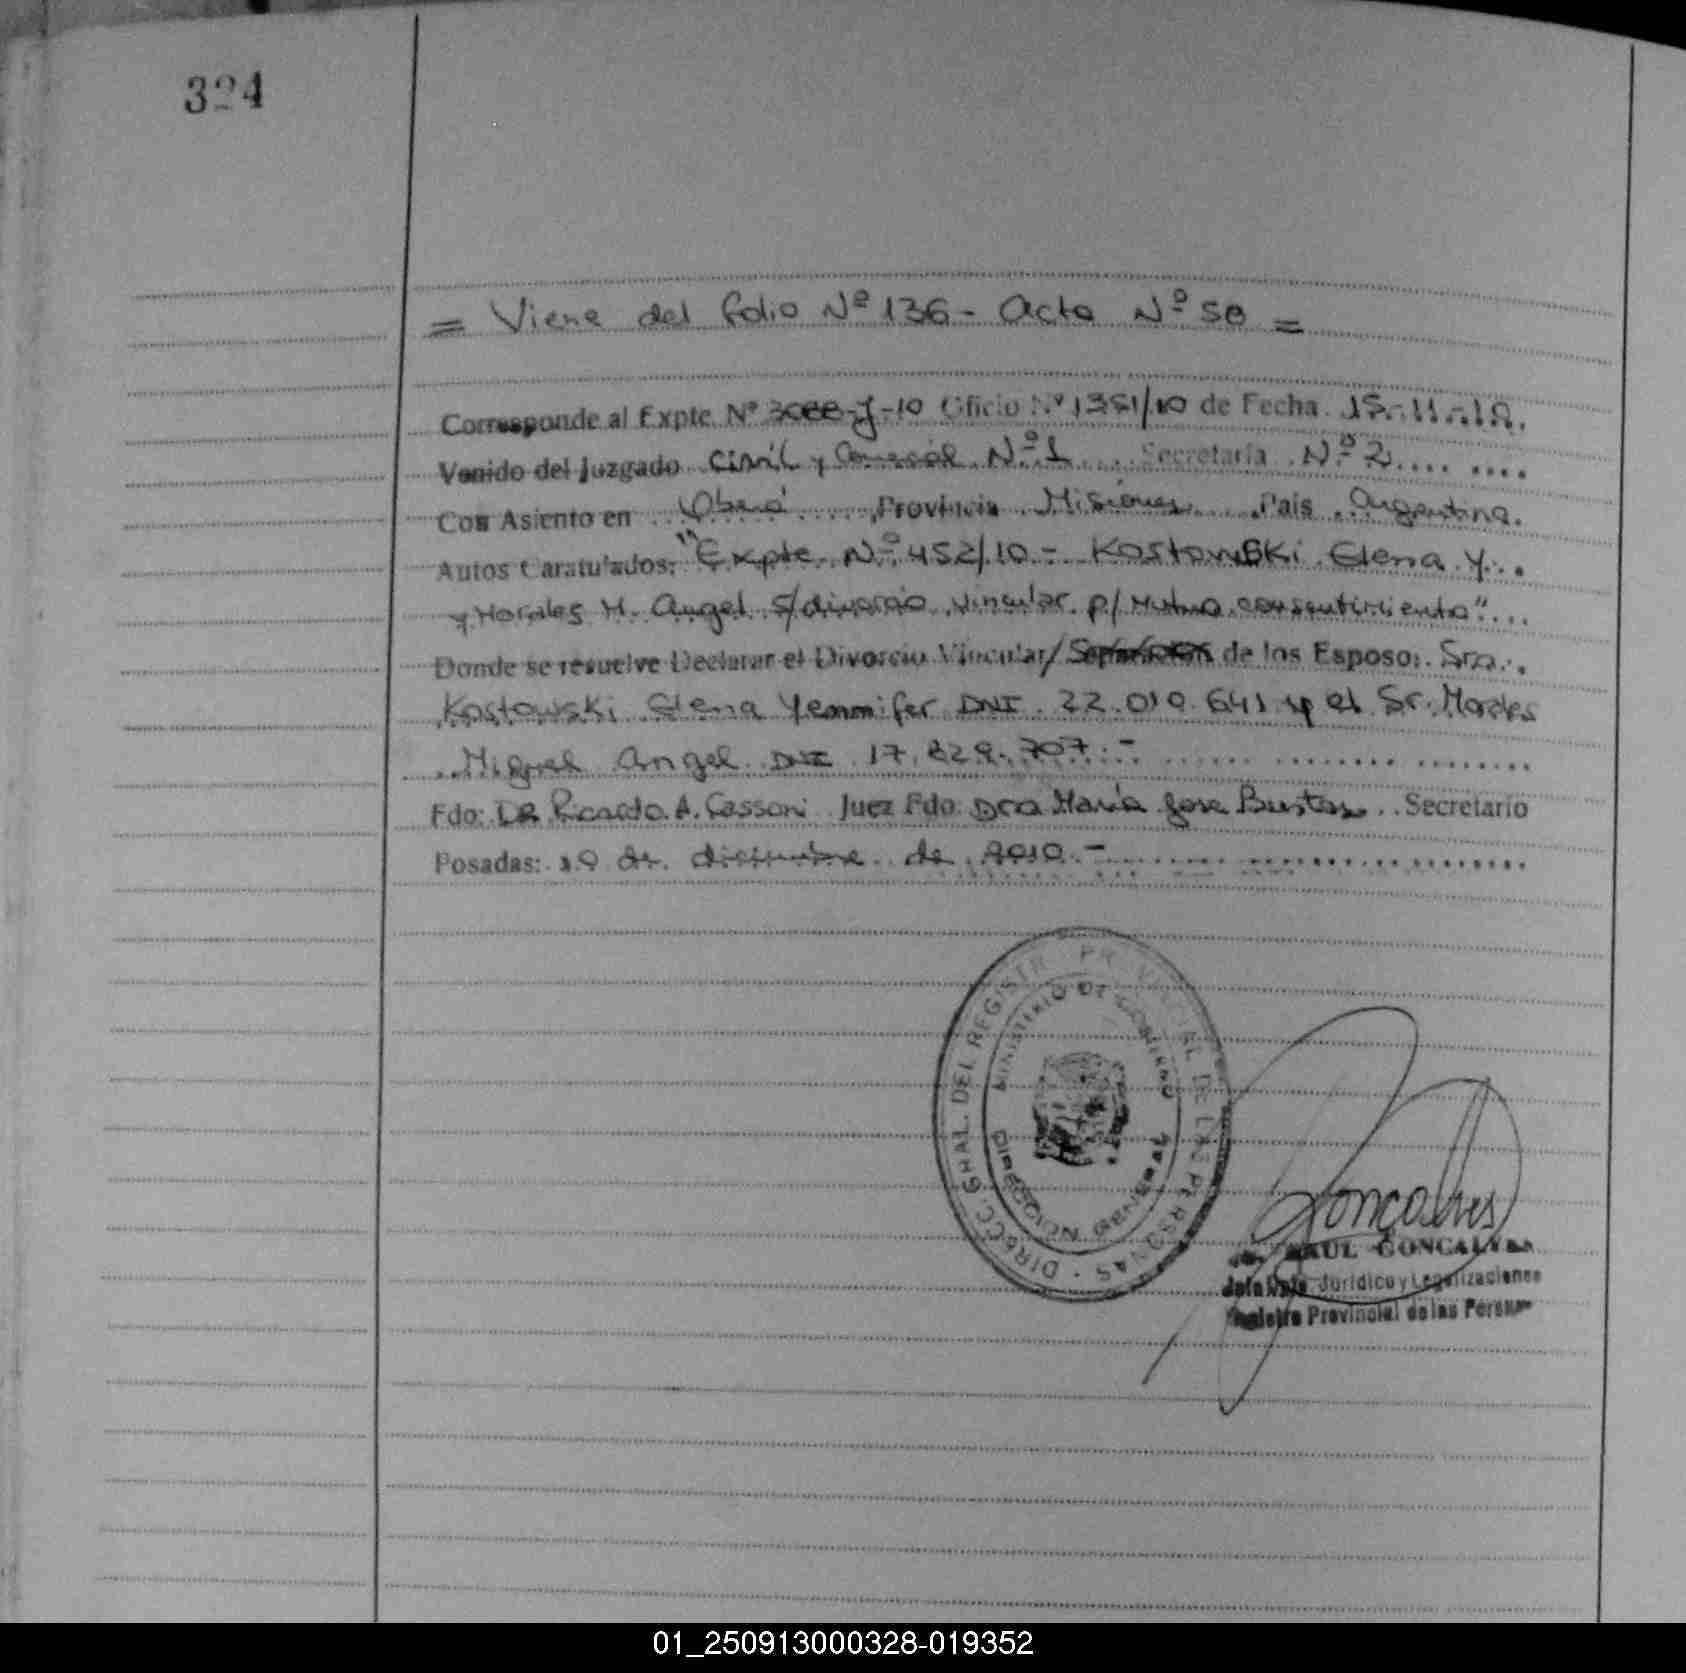 324
= Viene del folio Nº 136 - Acta Nº 50 =
Corresponde al Expte. Nº 3088-J-10 Oficio Nº 1351/10 de Fecha 15-11-10.
Venido del Juzgado Civil y Comercial Nº 1 Secretaria Nº 2
Con Asiento en Oberá Provincia Misiones País Argentina.
Autos Caratulados: "Expte Nº 452/10 - Kostowski Elena Y.
y Morales M. Angel s/divorcio vincular p/ Mutuo consentimiento"
Donde se resuelve Declarar el Divorcio Vincular/ Separación de los Esposo: Sra.
Kostowski Elena Yennifer DNI 22.010.641 y el Sr. Morales
Miguel Angel DNI 17.829.707.-
Fdo: Dr. Ricardo A. Cassoni Juez Fdo: Dra María Jose Bustos Secretario
Posadas: 10 de diciembre de 2010.-
DIRECC. GRAL. DEL REGISTR. PROVINCIAL DE LAS PERSONAS
MINISTERIO DE GOBIERNO
Goncalves
RAUL GONCALVES
Jefe Dpto. Jurídico y Legalizaciones
Registro Provincial de las Personas
01_250913000328-019352